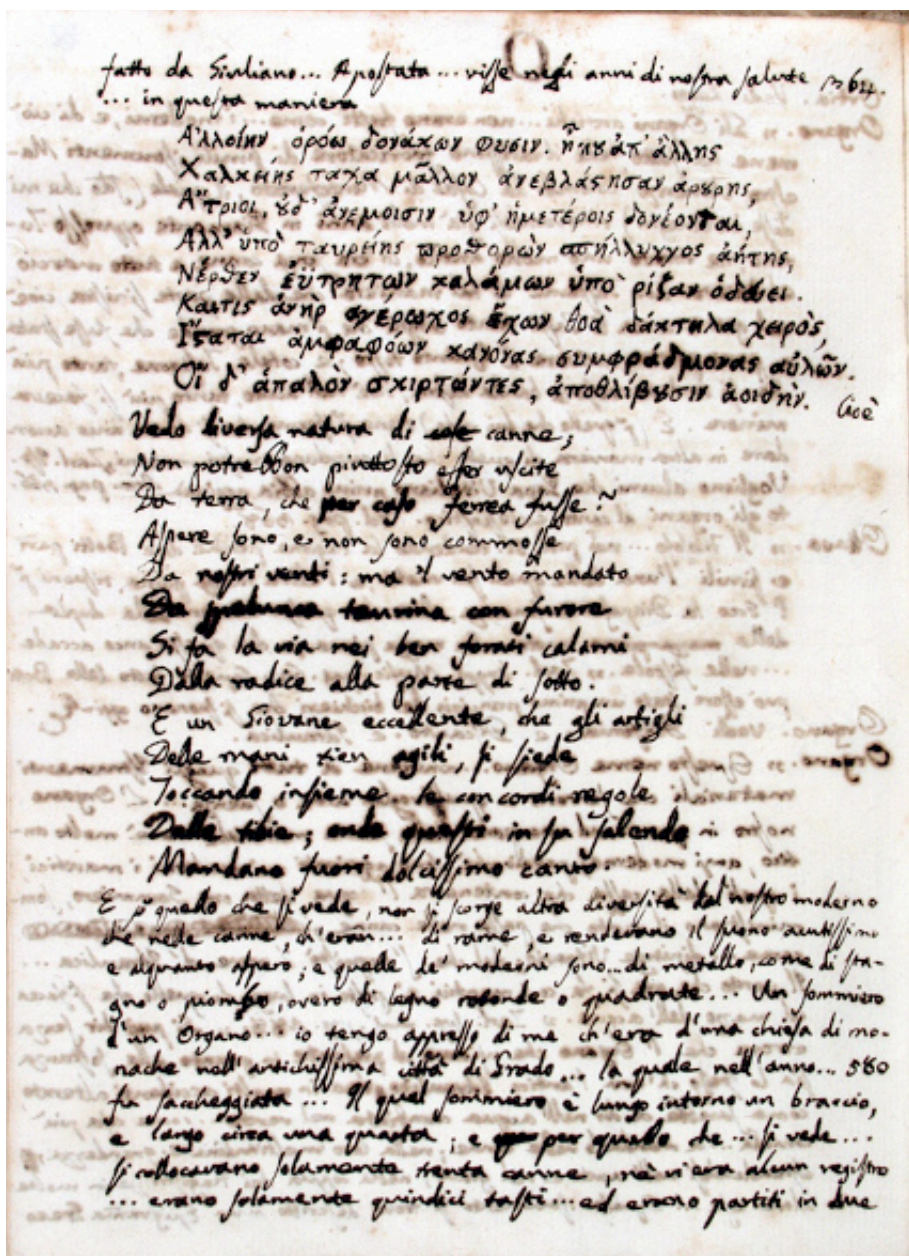 fatto da Giuliano... Apostata... visse negli anni di nostra salute 364.
... in questa maniera
Α'λλοίην ὁρόω δονάκων φυσιν. ἢπȣ ἀπ' ἄλλης
Χαλκείης ταχα μᾶλλον ἀνεβλάςησαν ἀρȣρης,
Α"γριοι, ȣδ' ἀνεμοισιν ὑφ' ἡμετέροις δονέονται,
Αλλ' ὑπὸ ταυρείης προθορὼν σπήλυγγος ἀήτης,
Νέρθεν ἐϋτρήτων καλάμων ὑπὸ ῥίζαν ὁδεύει.
Καιτις ἀνὴρ ἀγέρωχος ἔχων θοὰ δάκτυλα χειρὸς,
Ι"ςαται ἀμφαφόων κανόνας συμφράδμονας αὐλῶν.
Οἵ δ' ἁπαλὸν σκιρτώντες, ἀποθλίβȣσιν ἀοιδήν. Cioè
Vedo diversa natura di canne;
Non potrebbon piuttosto esser uscite
Da terra, che per caso ferrea fusse?
Aspere sono, e non sono commosse
Da nostri venti: ma 'l vento mandato
Da spelunca taurina con furore
Si fa la via nei ben forati calami
Dalla radice alla parte di sotto.
E un Giovane eccellente, che gli artigli
Delle mani tien agili, si siede
Toccando insieme le concordi regole
Delle tibie; onde questi in su salendo
Mandano fuori dolcissimo canto.
E p quello che si vede, non si scorge altra diversità dal nostro moderno
che nelle canne, ch'eran... di rame, e rendevano il suono acutissimo
e alquanto aspero; e quelle de' moderni sono... di metallo, come di sta-
gno o piombo, overo di legno rotonde o quadrate... Un sommiero
d'un Organo... io tengo appresso di me ch'era d'una chiesa di mo-
nache nell'antichissima città di Grado... la quale nell'anno... 580
fu saccheggiata... Il qual sommiero è lungo intorno un braccio,
e largo circa una quarta; e per quello che... si vede...
si collocavano solamente trenta canne, nè vi era alcun registro
... erano solamente quindici tasti... ed erano partiti in due